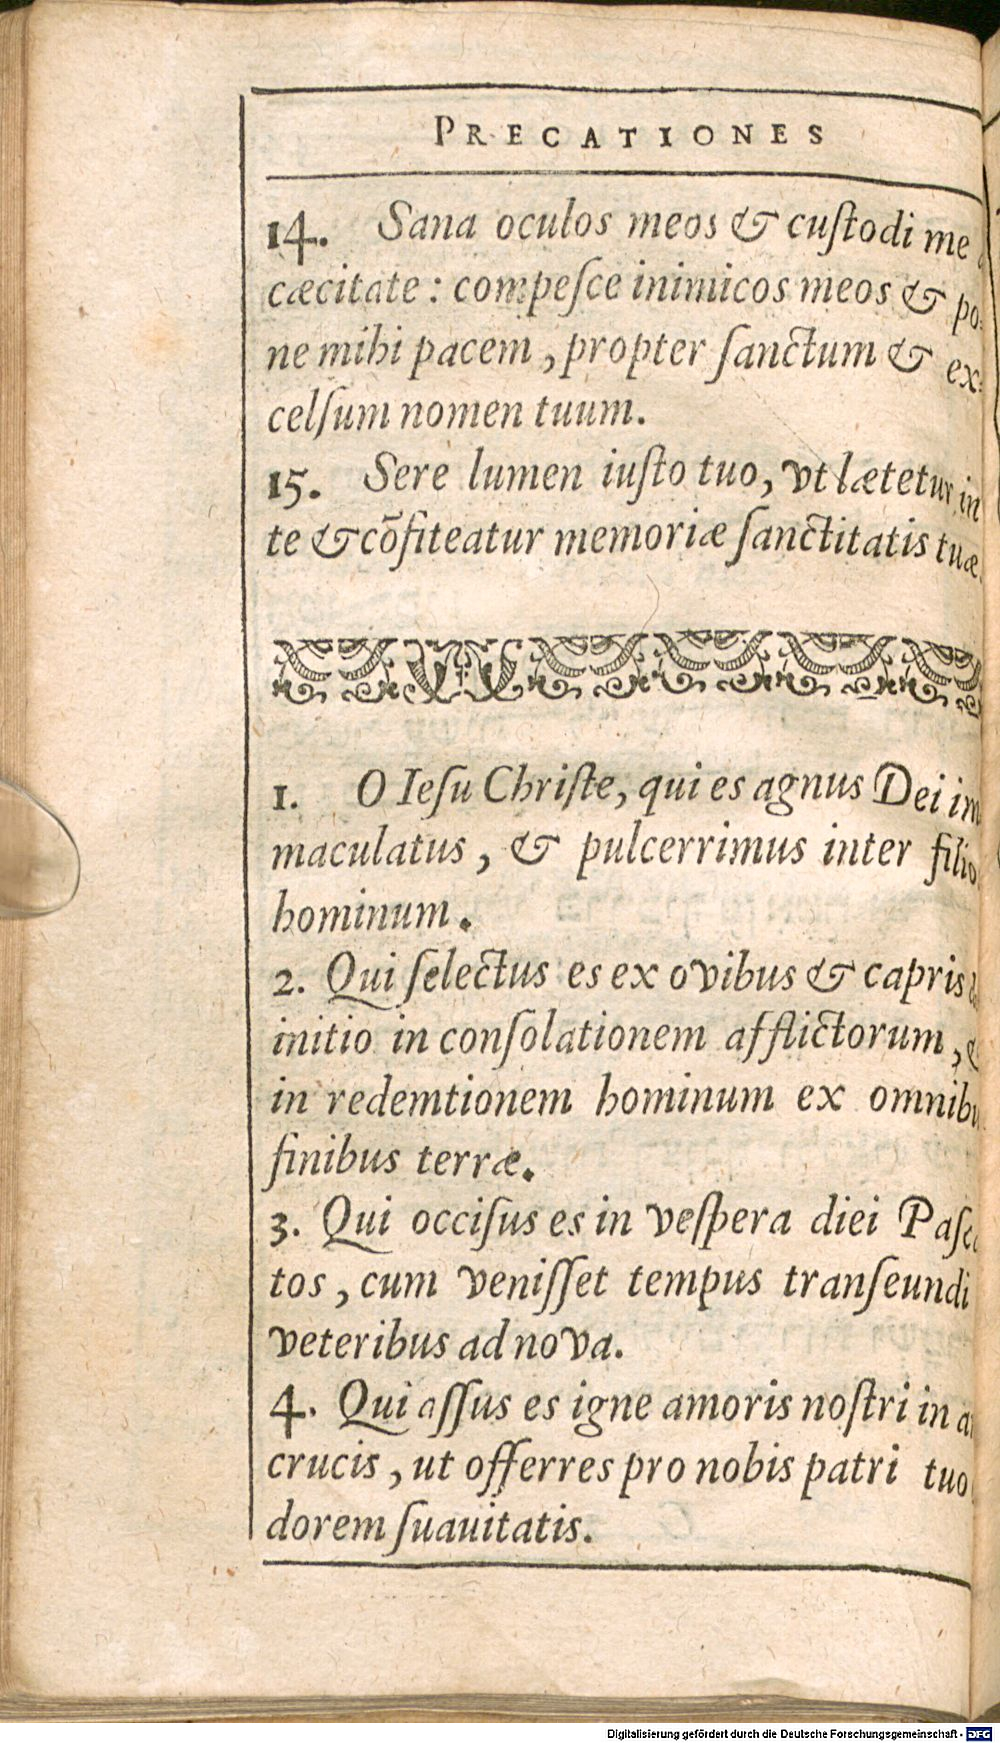 PRECATIONES
14. Sana oculos meos & cuſtodi me
cæcitate: compeſce inimicos meos & po-
ne mihi pacem, propter ſanctum & ex-
celſum nomen tuum.
15. Sere lumen iuſto tuo, vt lætetur in
te & cõfiteatur memoriæ ſanctitatis tuæ.
1. O Ieſu Chriſte, qui es agnus Dei im
maculatus, & pulcerrimus inter
hominum.
2. Qui ſelectus es ex ovibus & capris
initio in conſolationem afflictorum, &
in redemtionem hominum ex
finibus terræ.
3. Qui occiſus es in veſpera diei
tos, cum veniſſet tempus tranſeundi
veteribus ad nova.
4. Qui aſſus es igne amoris noſtri in
crucis, ut offerres pro nobis patri tuo
dorem ſuauitatis.
Digitalisierung gefördert durch die Deutsche Forschungsgemeinschaft - DFG